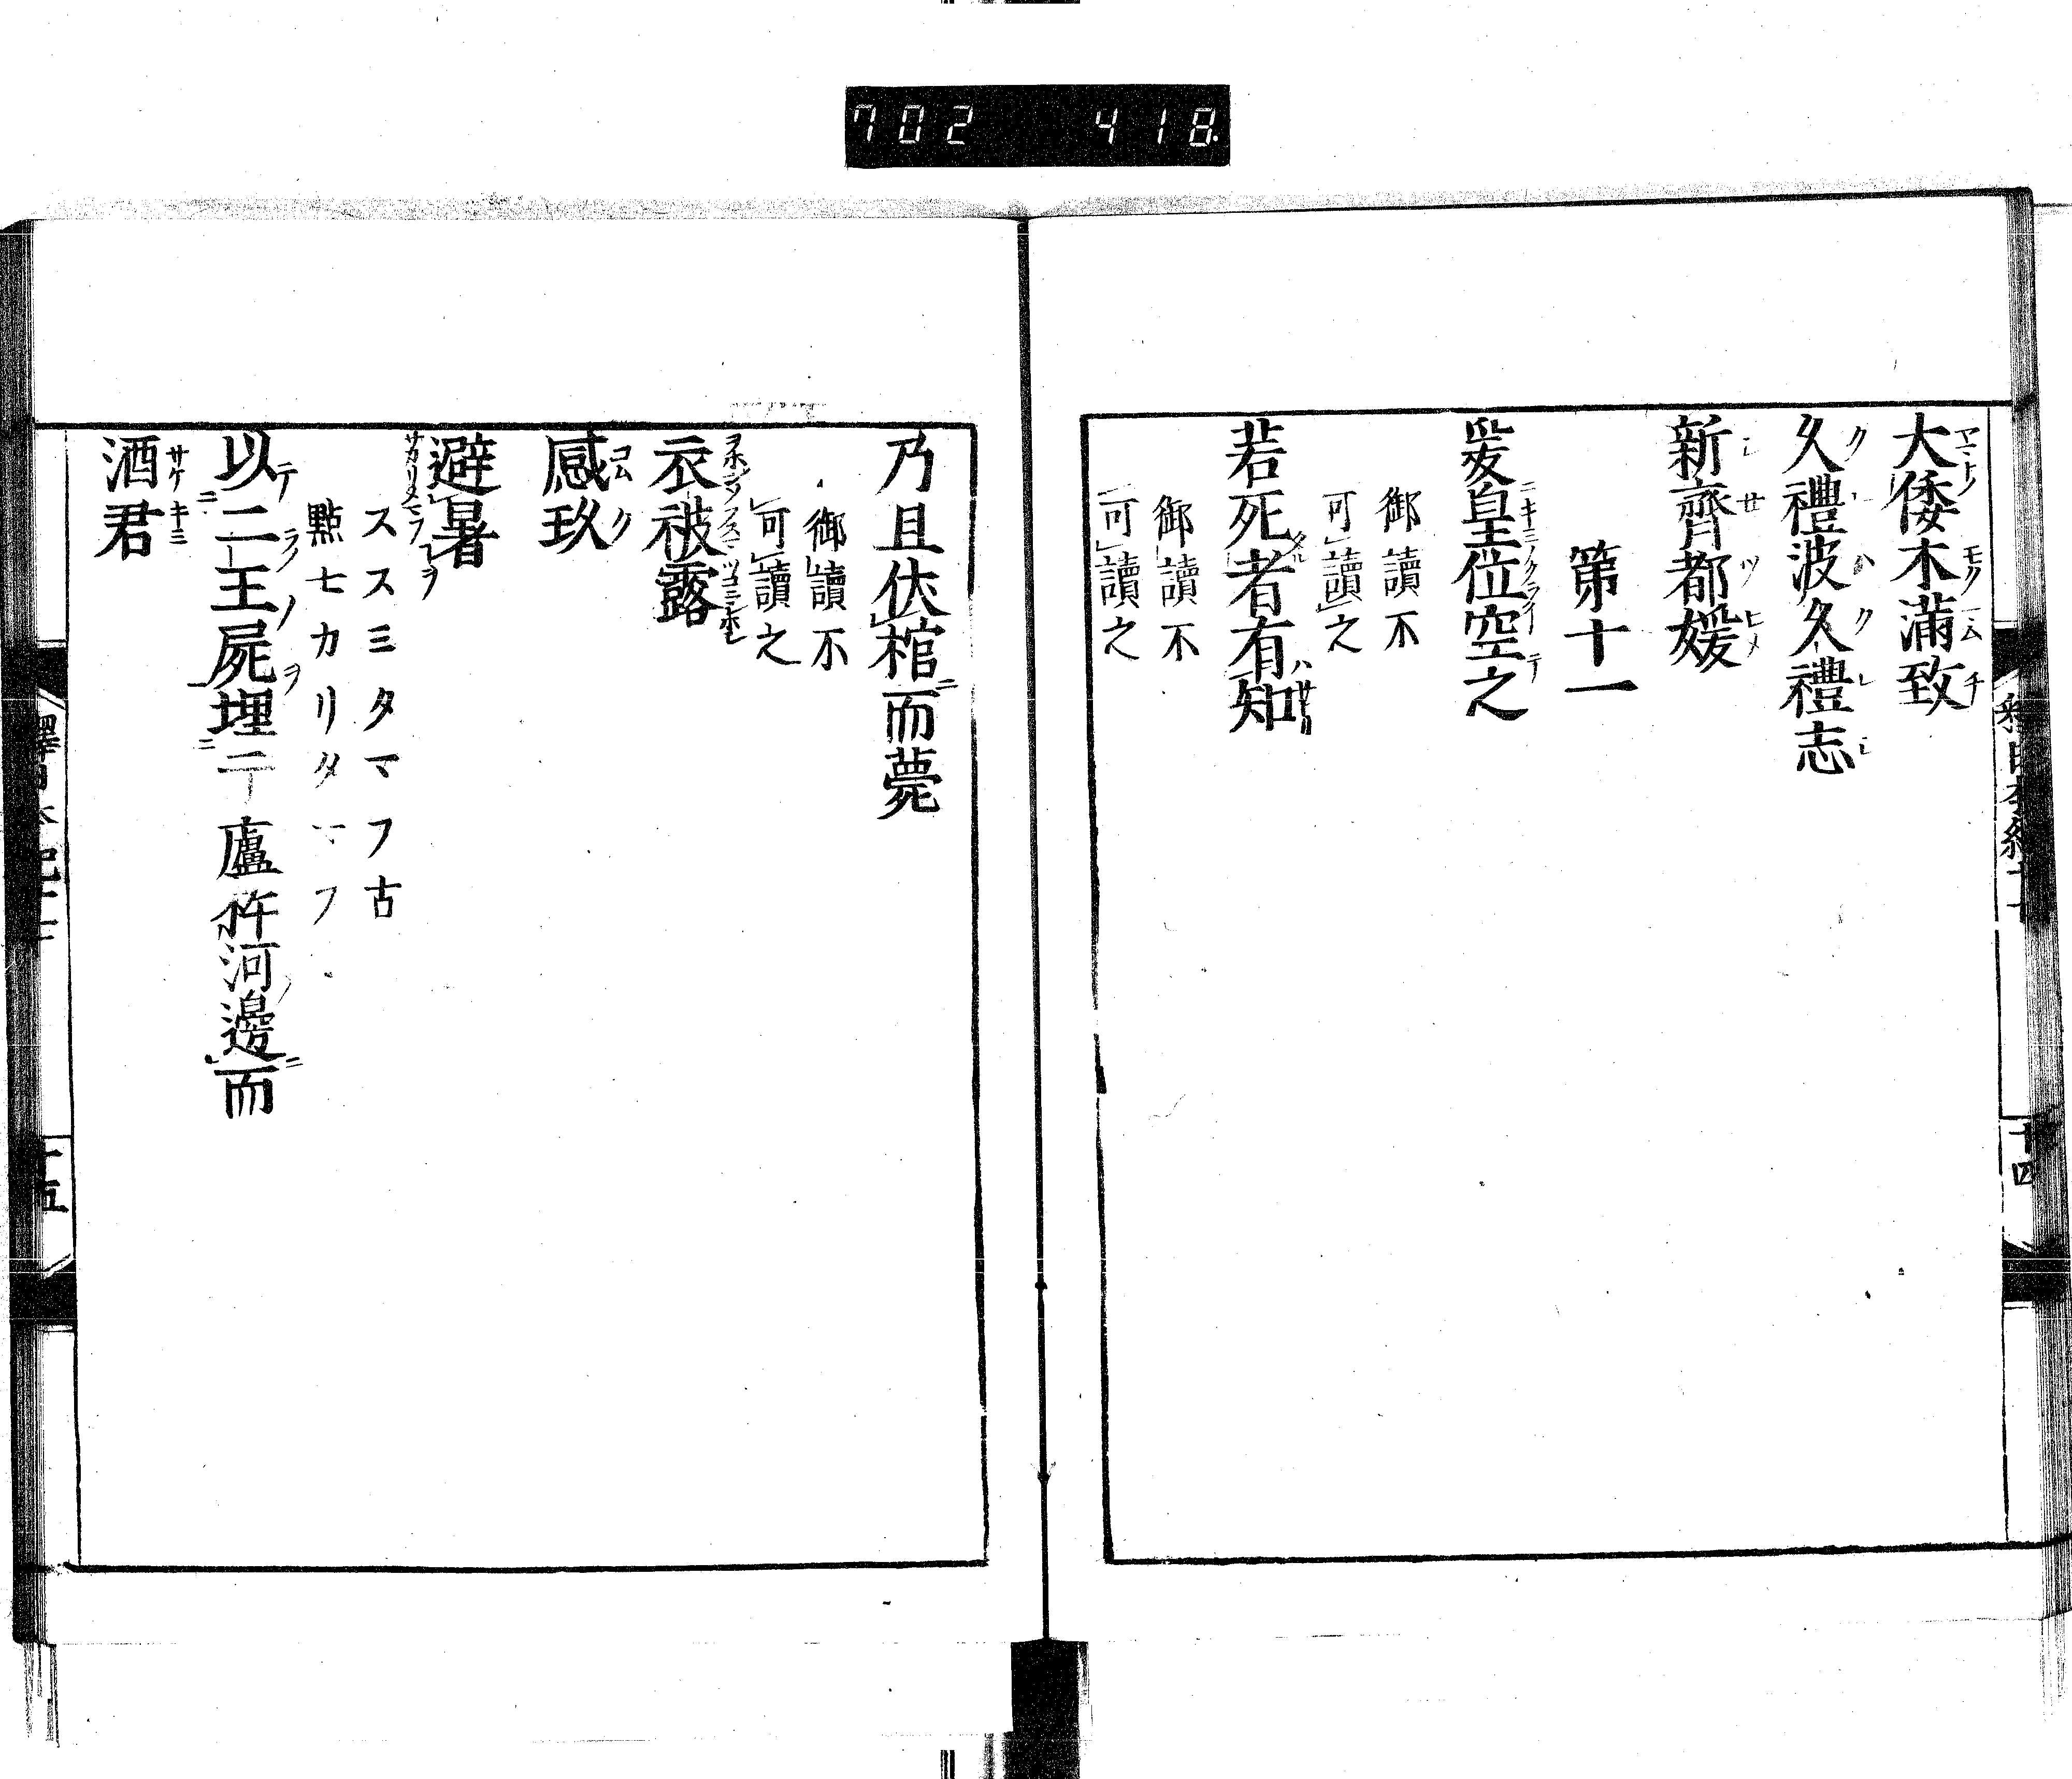 702 418
大倭木滿致
久禮波久禮志
新齊都媛
第十一
爰皇位空之
御讀不
可讀之
若死者有知
御讀不
可讀之
十四
乃且伏棺而薨
御讀不
可讀之
衣被露
感玖
避暑
ススミタマフ古
點七カリタマフ
以二王屍埋于廬杵河邊而
酒君
十五